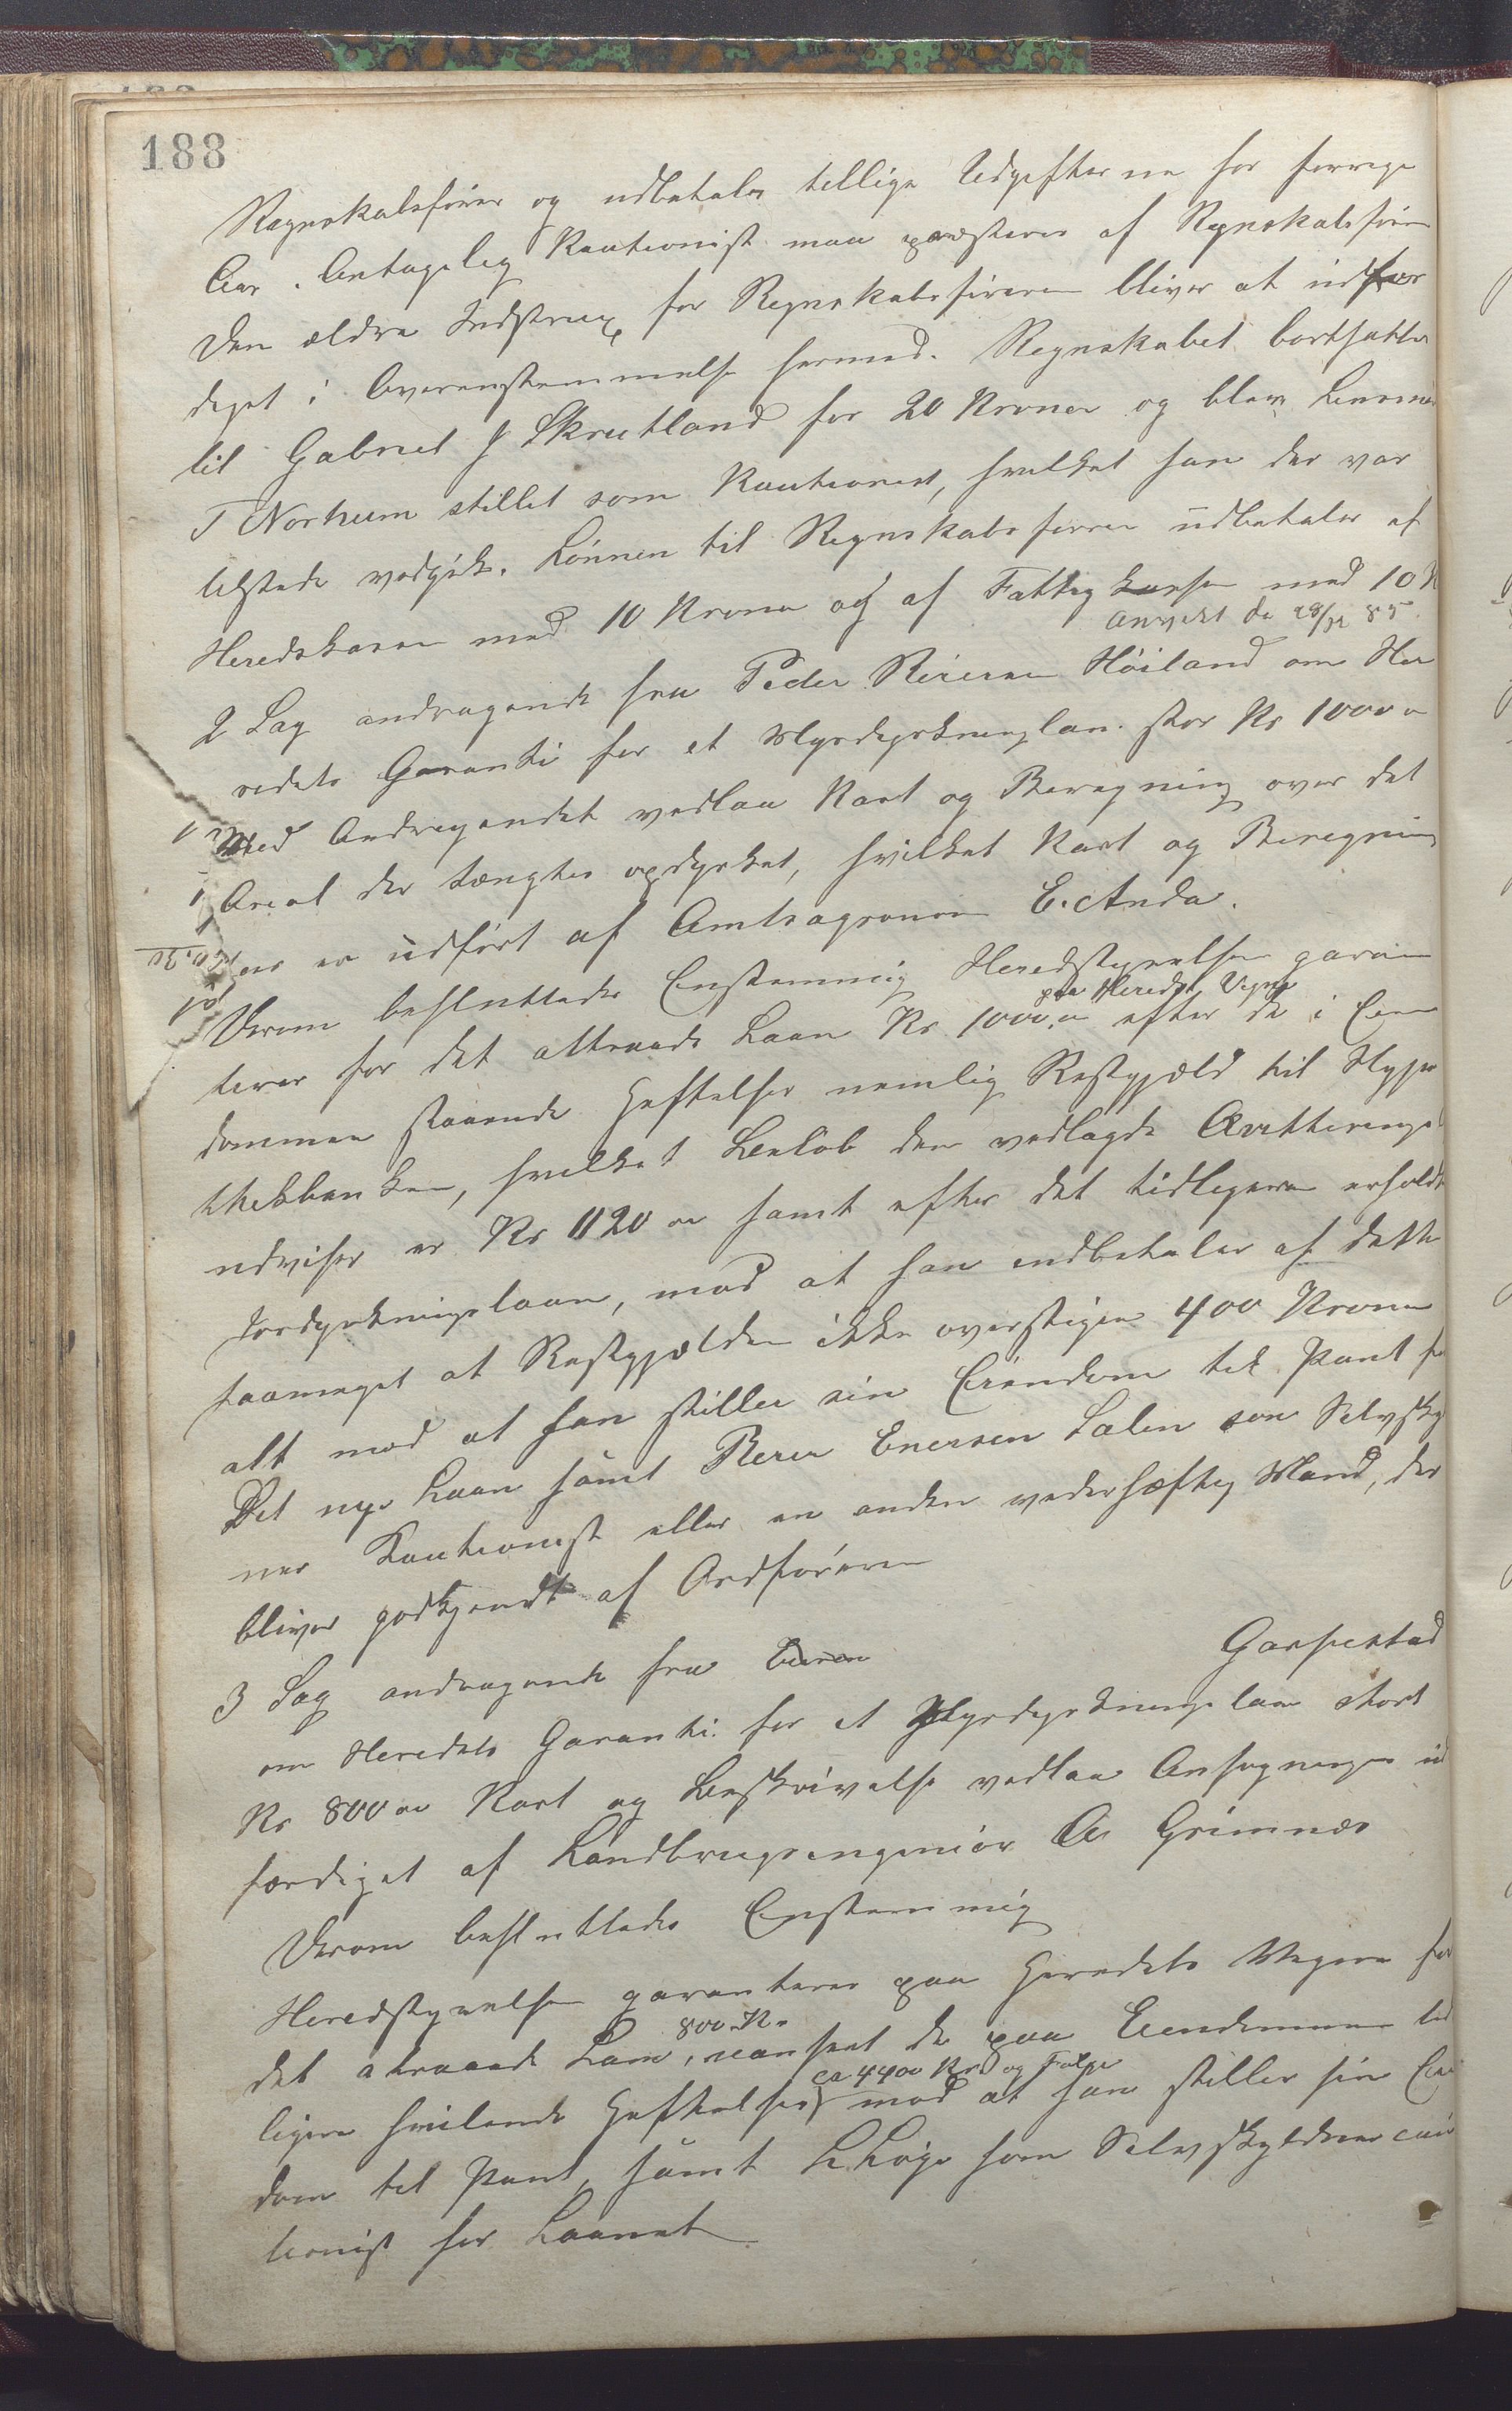 188
Regnskabsfører og udbetaler tillige Udgifterne for forrige
Aar. Antagelig Kautionist maa præsteres af Regnskabsføre
Den ældre Instrux for Regnskabsføreren bliver at udfær
diget i Overenstemmelse hermed. Regnskabet bortsattes
til Gabriel J Skretland for 20 Kroner og blev Lensma
T Norheim stillet som Kautionist, hvilket han der var
tilstede vedgik. Lønnen til Regnskabsfører udbetales af
Heredskassen med 10 Kroner og af Fattigkassen med 10 K
Anvist de 28/12 85.
2 Sag andragende fra Peder Reiersen Høiland om He
redets Garanti for et Myrdyrkningslan stor Kr 1000 "
Med Andragendet vedlaa Kart og Beregning over det
Areal der tængtes opdyrket, hvilket Kart og Beregning
er udført af Amtsagronom E. Anda.
Derom besluttedes Enstemmig Heredstyrelsen garan
paa Heredets Vegne
terer for det attraaede Laan Kr 1000,00 efter de i Eien
dommen staaende Heftelser nemlig Restgjæld til Hypo
thekbanken, hvilket Beløb den vedlagde Qvittering
udviser er Kr 1120 00 samt efter det tidligere erholdt
Jordyrkningslaan, mod at han indbetaler af dette
saameget at Restgjælden ikke overstiger 400 Kroner
alt mod at han stiller sin Eiendom til Pant fo
Det nye Laan samt Reier Enersen Lalen som Selvskyl
ner Kautionist eller en anden vederhæftig Mand, der
bliver godkjendt af Ordføreren
3 Sag andragende fra Garpestad
om Heredets Garanti for et Myrdyrkningslaan stort
Kr 800 00 Kart og Beskrivelse vedlaa Ansøgningen ud
færdiget af Landbrugsingeniør A Grimnes
Derom besluttedes Enstemmig
Heredstyrelsen garanterer paa Heredets Vegne for
800 Kr.
det atraaede Laan, uanseet de paa Eiendommen tid
ca 4400 Kr og Følge
ligere hvilende Heftelser mod at han stiller sin Eien
dom til Pant, samt L. Høge som Selvskyldnercau
tionist for Laanet